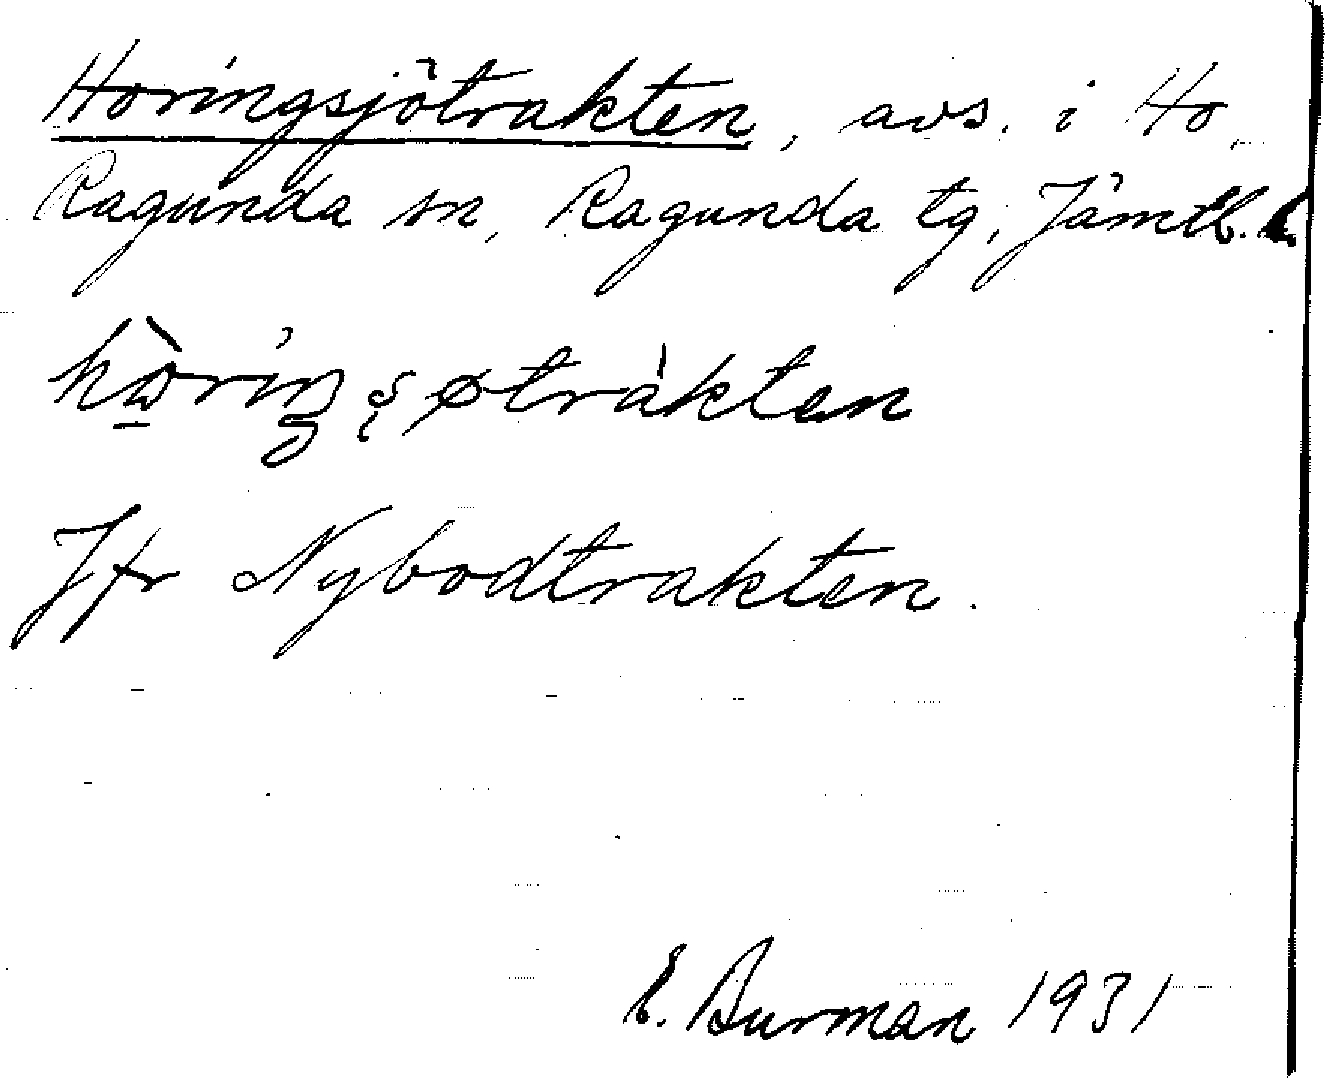 Horingsjötrakten, avs. i Ho,
Ragunda sn, Ragunda tg, Jämtl. l.
träkten
Jfr Nybodtrakten.
E. Burman 1931